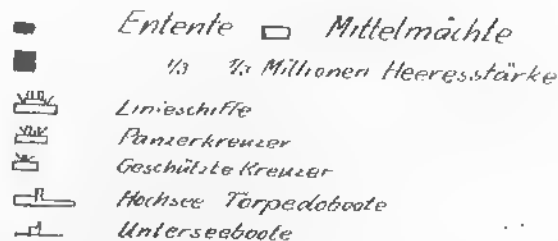 Entente Mittelmächte
1/3 Millionen Heeresstärke
Linieschiffe
Panzerkreuzer
Geschützte Kreuzer
Hochsee Torpedoboote
Unterseeboote